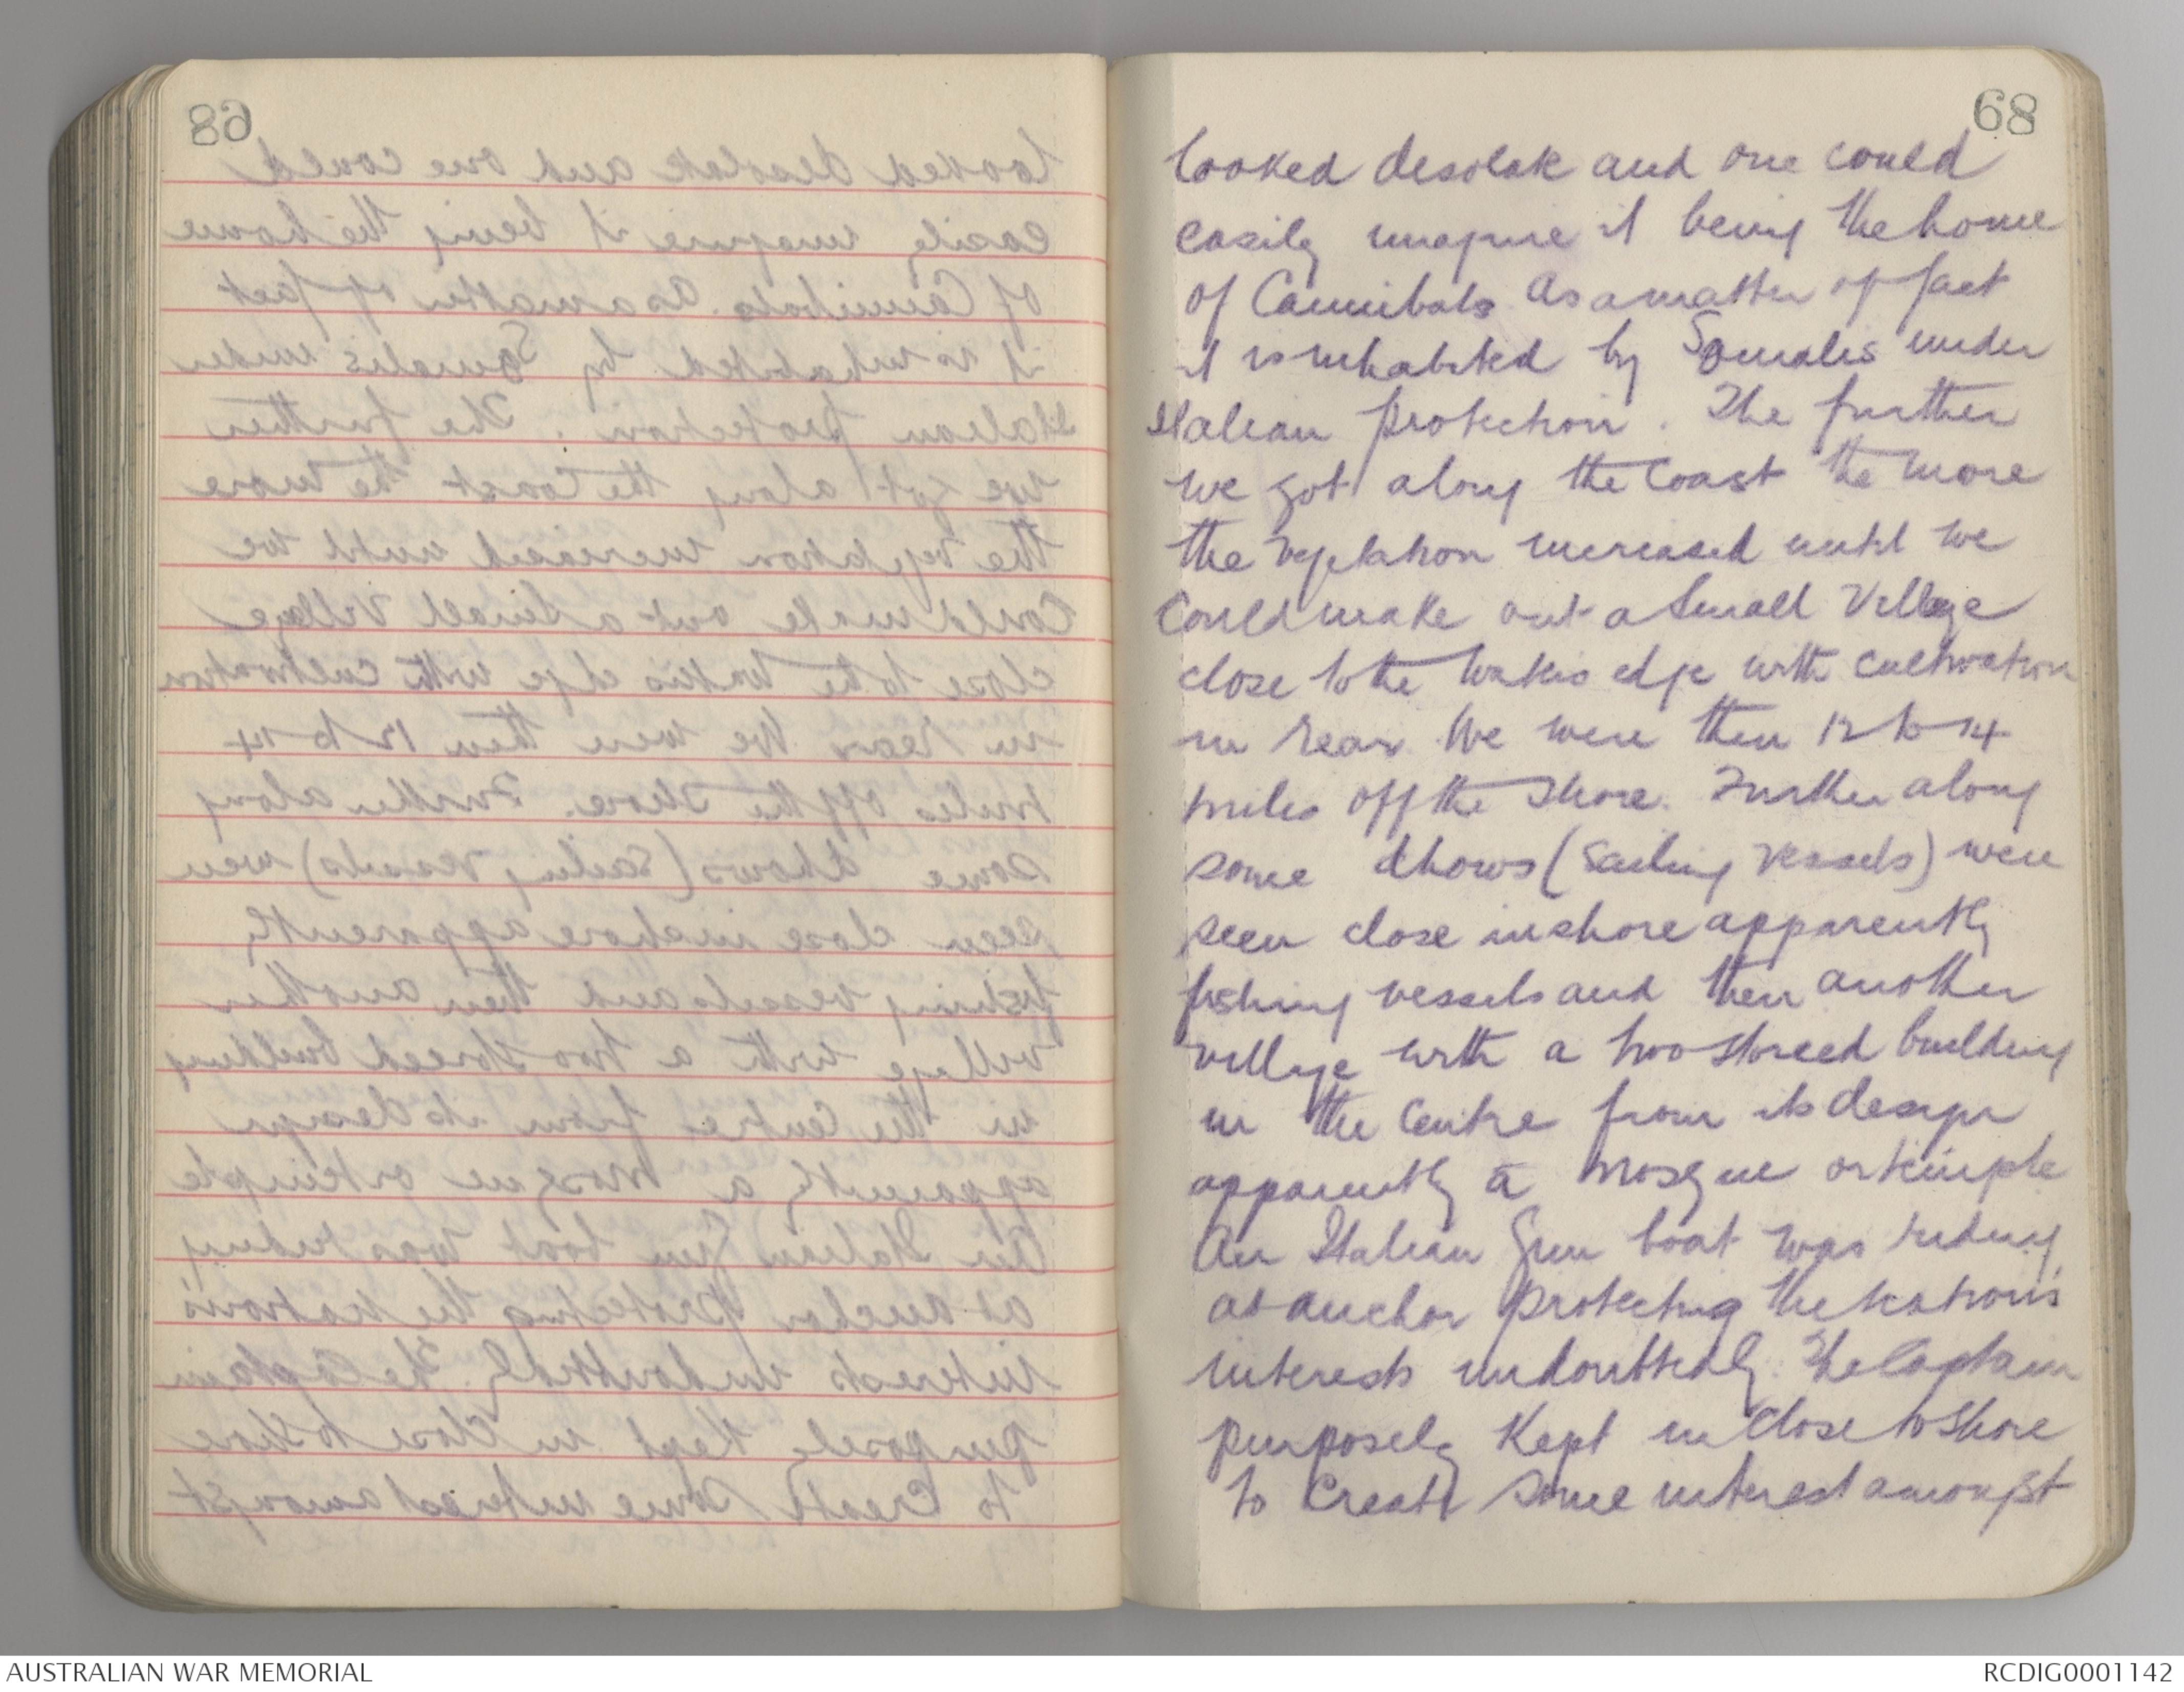 68
looked desolate and one could
easily imagine it being the home
of Cannibals As a matter of fact
it is inhabited by Somalis under
Italian protection. The further
we got along the Coast the more
the vegetation increased until we
Could make out a Small Village
close to the waters edge with cultivation
in rear We were then 12 to 14
miles off the Shore. Further along
some dhows (Sailing vessels) were
seen close inshore apparently
fishing vessels and then another
village with a two storeed building
in the Centre from its design
apparently a Mosque or temple
An Italian Gun boat was riding
at anchor protecting the nation's
interests undoubtedly. The Captain
purposely Kept in Close to Shore
to Create Some interest amongst
AUSTRALIAN WAR MEMORIAL
RCDIG0001142